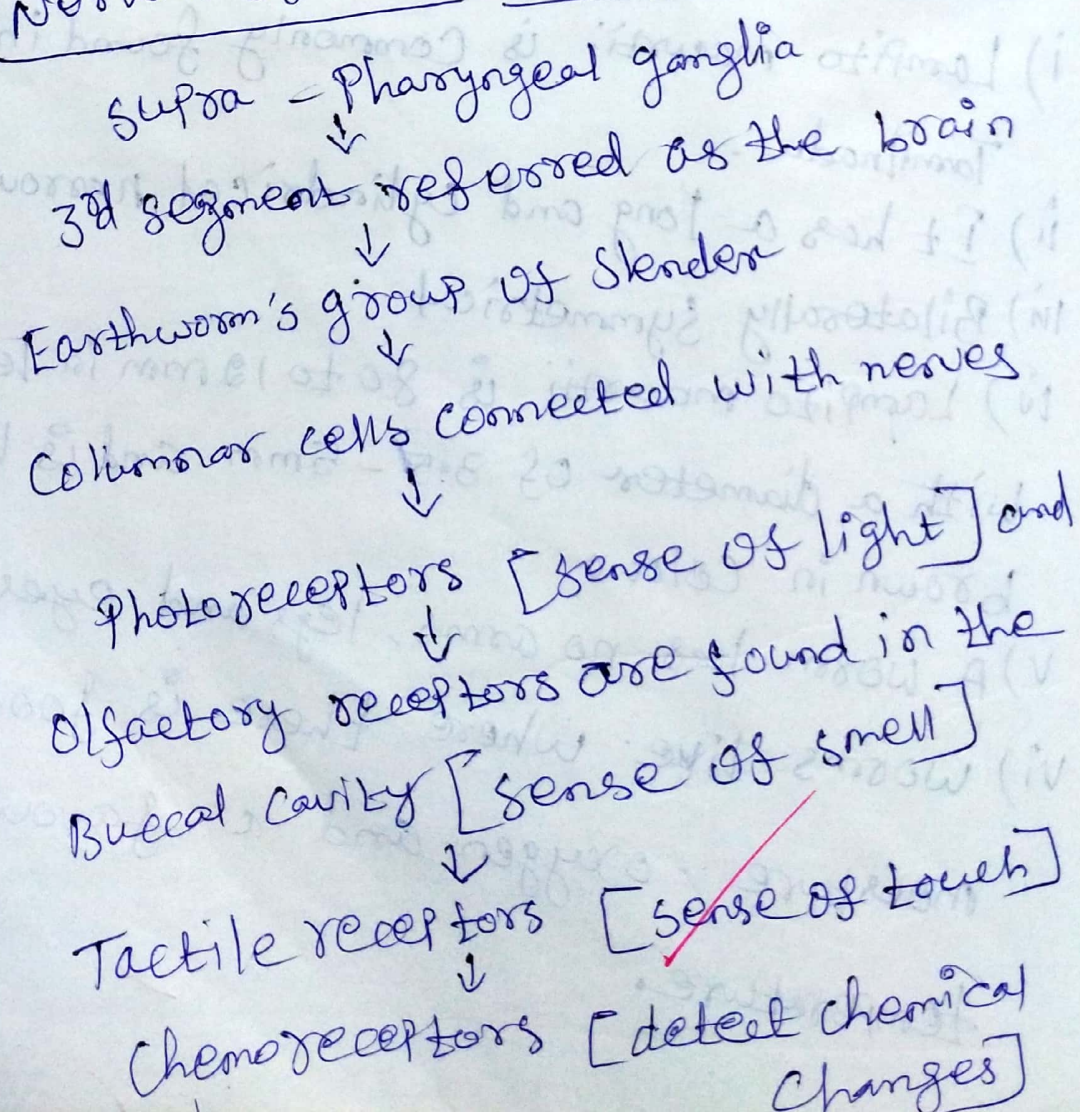 Supra - Pharyngeal ganglia
↓
3rd segment referred as the brain
↓
Earthworm's group of slender
↓
Columnar cells connected with nerves
↓
Photoreceptors [sense of light] and
↓
Olfactory receptors are found in the
Buccal cavity [sense of smell]
↓
Tactile receptors [sense of touch]
↓
Chemoreceptors [detect chemical
changes]